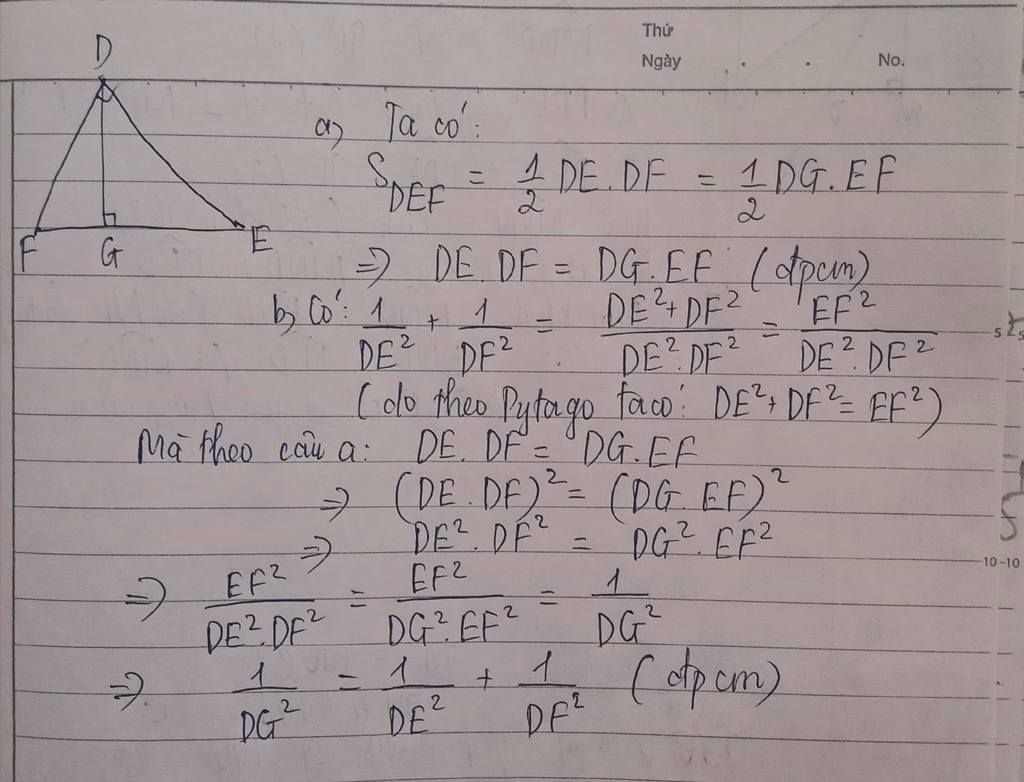 Thứ
Ngày . . No.
D
F G E
a) Ta có:
S_DEF = 1/2 DE.DF = 1/2 DG.EF
=> DE.DF = DG.EF (đpcm)
b) Có: 1/DE² + 1/DF² = (DE²+DF²)/(DE².DF²) = EF²/(DE².DF²)
5
(do theo Pytago ta có: DE²+DF²=EF²)
Mà theo câu a: DE.DF = DG.EF
=> (DE.DF)² = (DG.EF)²
=> DE².DF² = DG².EF²
10-10
=> EF²/(DE².DF²) = EF²/(DG².EF²) = 1/DG²
=> 1/DG² = 1/DE² + 1/DF² (đpcm)